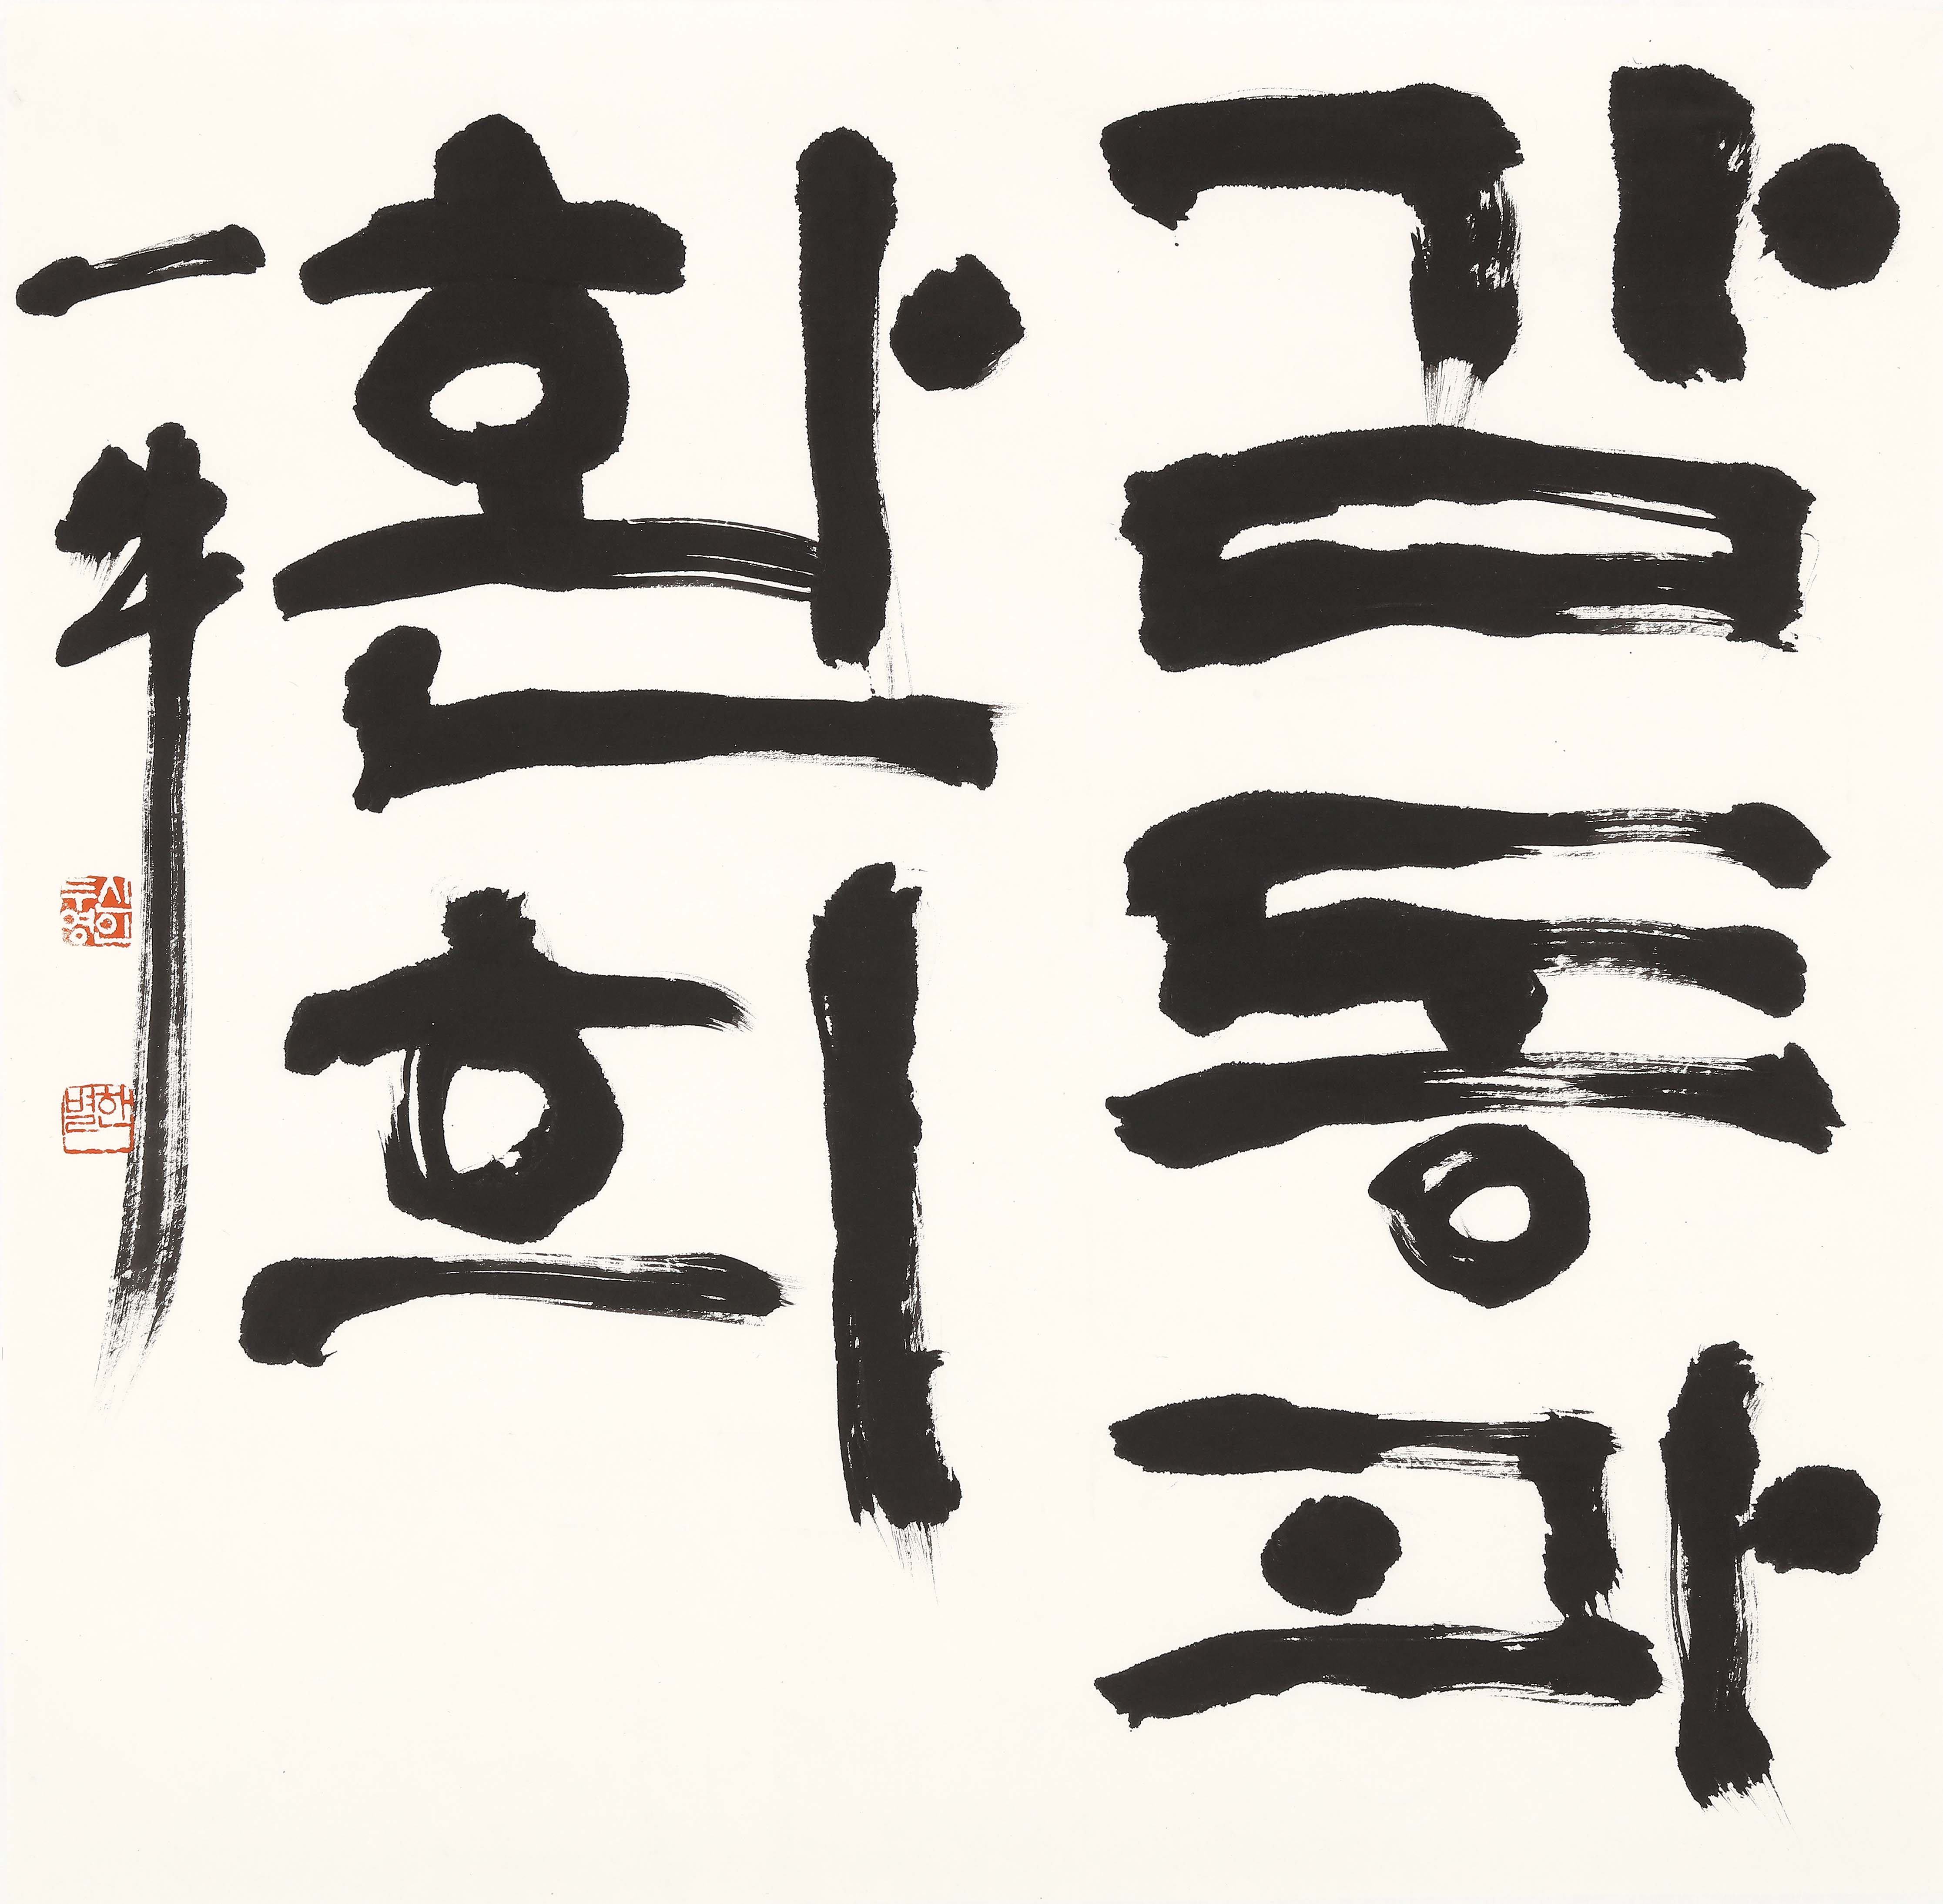 감동과
환희
一牛
신두영인
한별